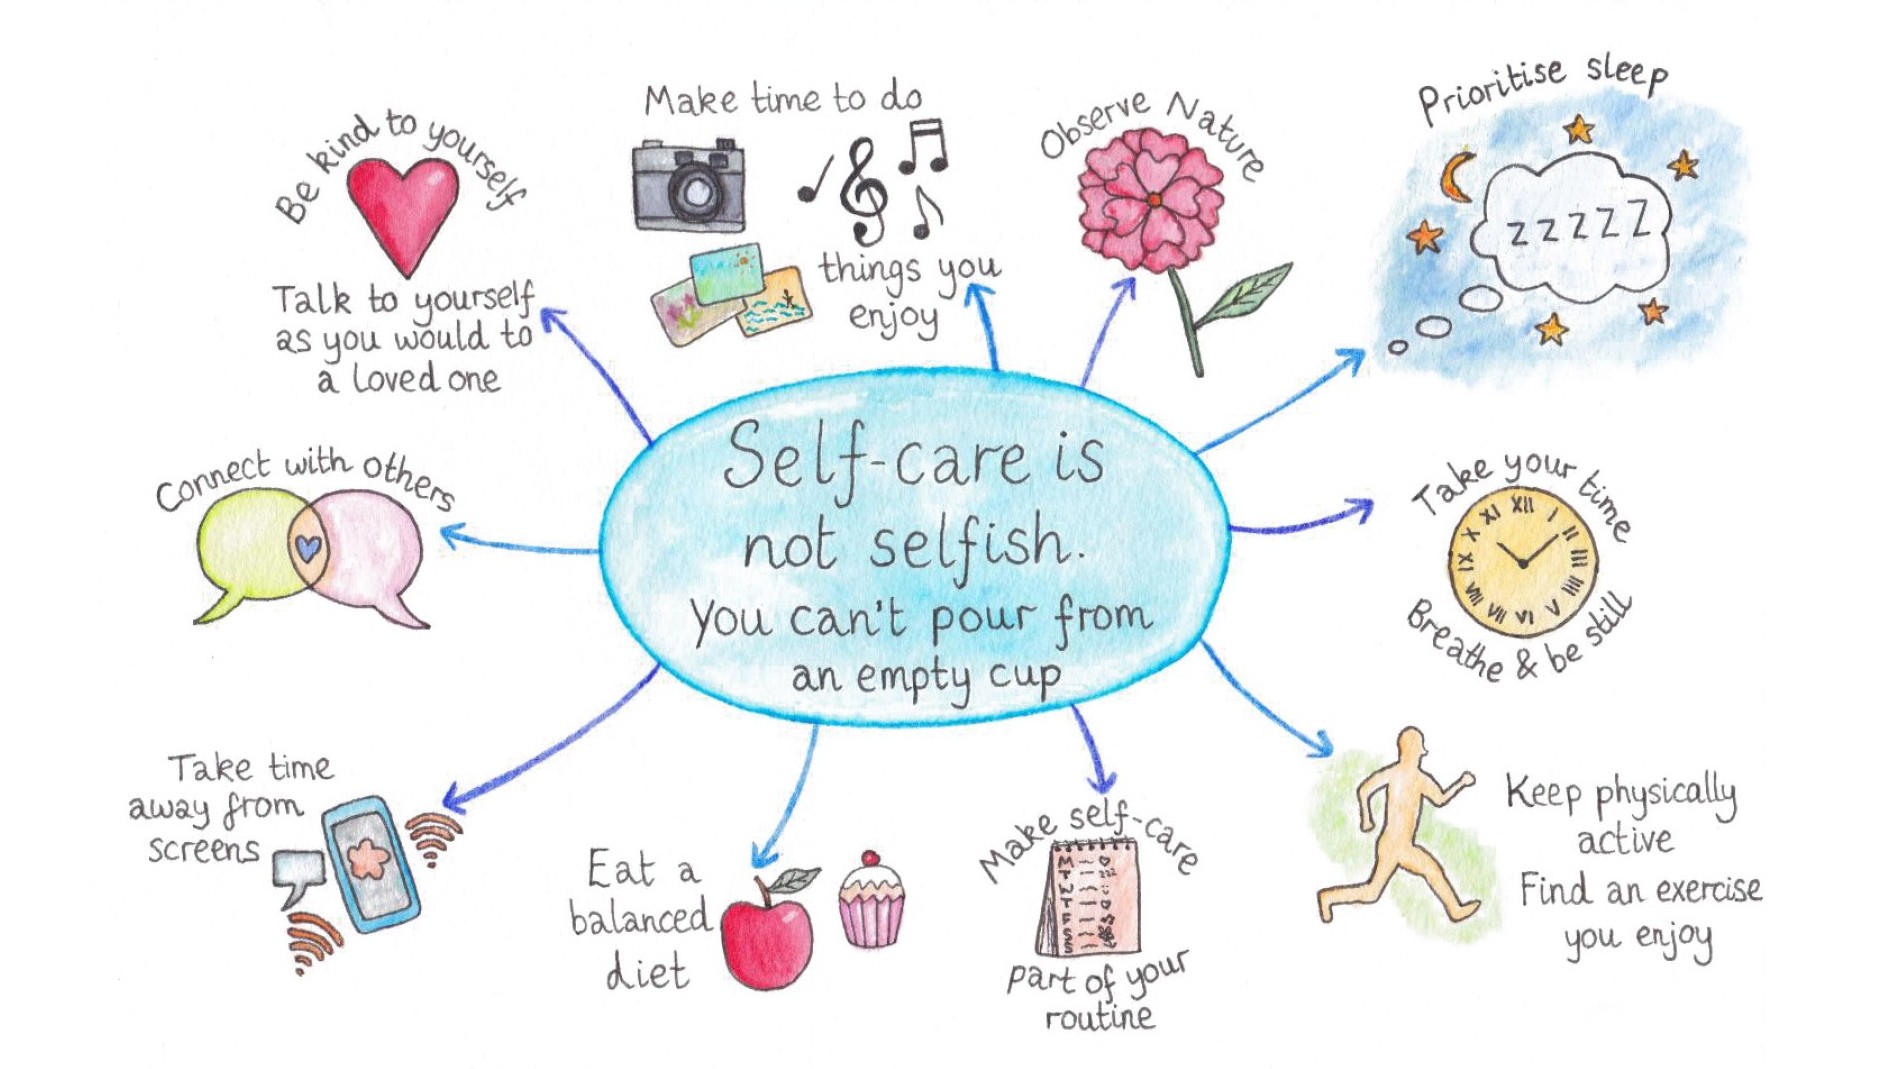 Be kind to yourself
Talk to yourself
as you would to
a loved one
Make time to do
things you
enjoy
Observe Nature
Prioritise sleep
zzzzz
Connect with others
Self-care is
not selfish.
You can't pour from
an empty cup
Take your time
XII I II III IIII V VI VII VIII IX X XI
Breathe & be still
Take time
away from
screens
Eat a
balanced
diet
Make self-care
M
T
W
T
F
S
S
part of your
routine
Keep physically
active
Find an exercise
you enjoy